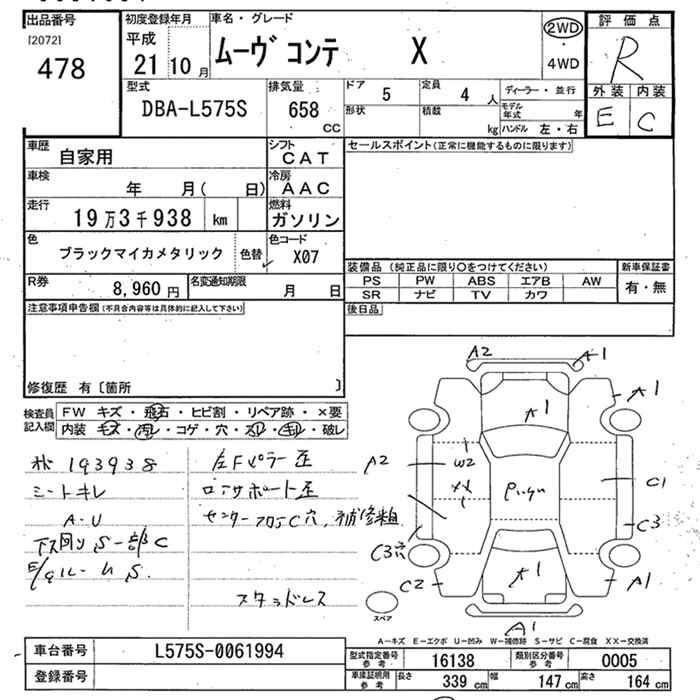 出品番号
[2072]
478
初度登録年月
平成
21 10 月
車名・グレード
ムーヴ コンテ X
2WD
・
4WD
評価点
R
外装 内装
E C
型式
DBA-L575S
排気量
658
CC
ドア 5
定員 4 人
形状
積載 kg
ディーラー・並行
モデル年式 年
ハンドル 左・右
車歴 自家用
シフト CAT
車検 年 月( 日)
冷房 AAC
走行 19万3千938 km
燃料 ガソリン
色 ブラックマイカメタリック 色替
色コード X07
R券 8,960 円
名変通知期限 月 日
セールスポイント(正常に機能するものに限ります)
装備品 (純正品に限り○をつけてください)
新車保証書
PS PW ABS エアB AW
SR ナビ TV カワ
有・無
後日品
注意事項申告欄(不具合内容等は具体的に記入して下さい)
修復歴 有〔箇所 〕
検査員記入欄
FW キズ・飛石・ヒビ割・リペア跡・×要
内装 キズ・汚レ・コゲ・穴・スレ・キレ・破レ
193938
シートキレ
A・U
下回りS一部C
E/gルームS
左Fピラー歪
ロアサポート歪
センターフロアC穴、補修粗
スタッドレス
A2
A1
A1
A1
A2
W2
XX
C1
C3
C3穴
C2
A1
A1
A1
スペア
A-キズ E-エクボ U-凹み W-補修跡 S-サビ C-腐食 XX-交換済
車台番号 L575S-0061994
登録番号
型式指定番号 参考 16138
類別区分番号 参考 0005
車検証明用 参考
長さ 339 cm
幅 147 cm
高さ 164 cm